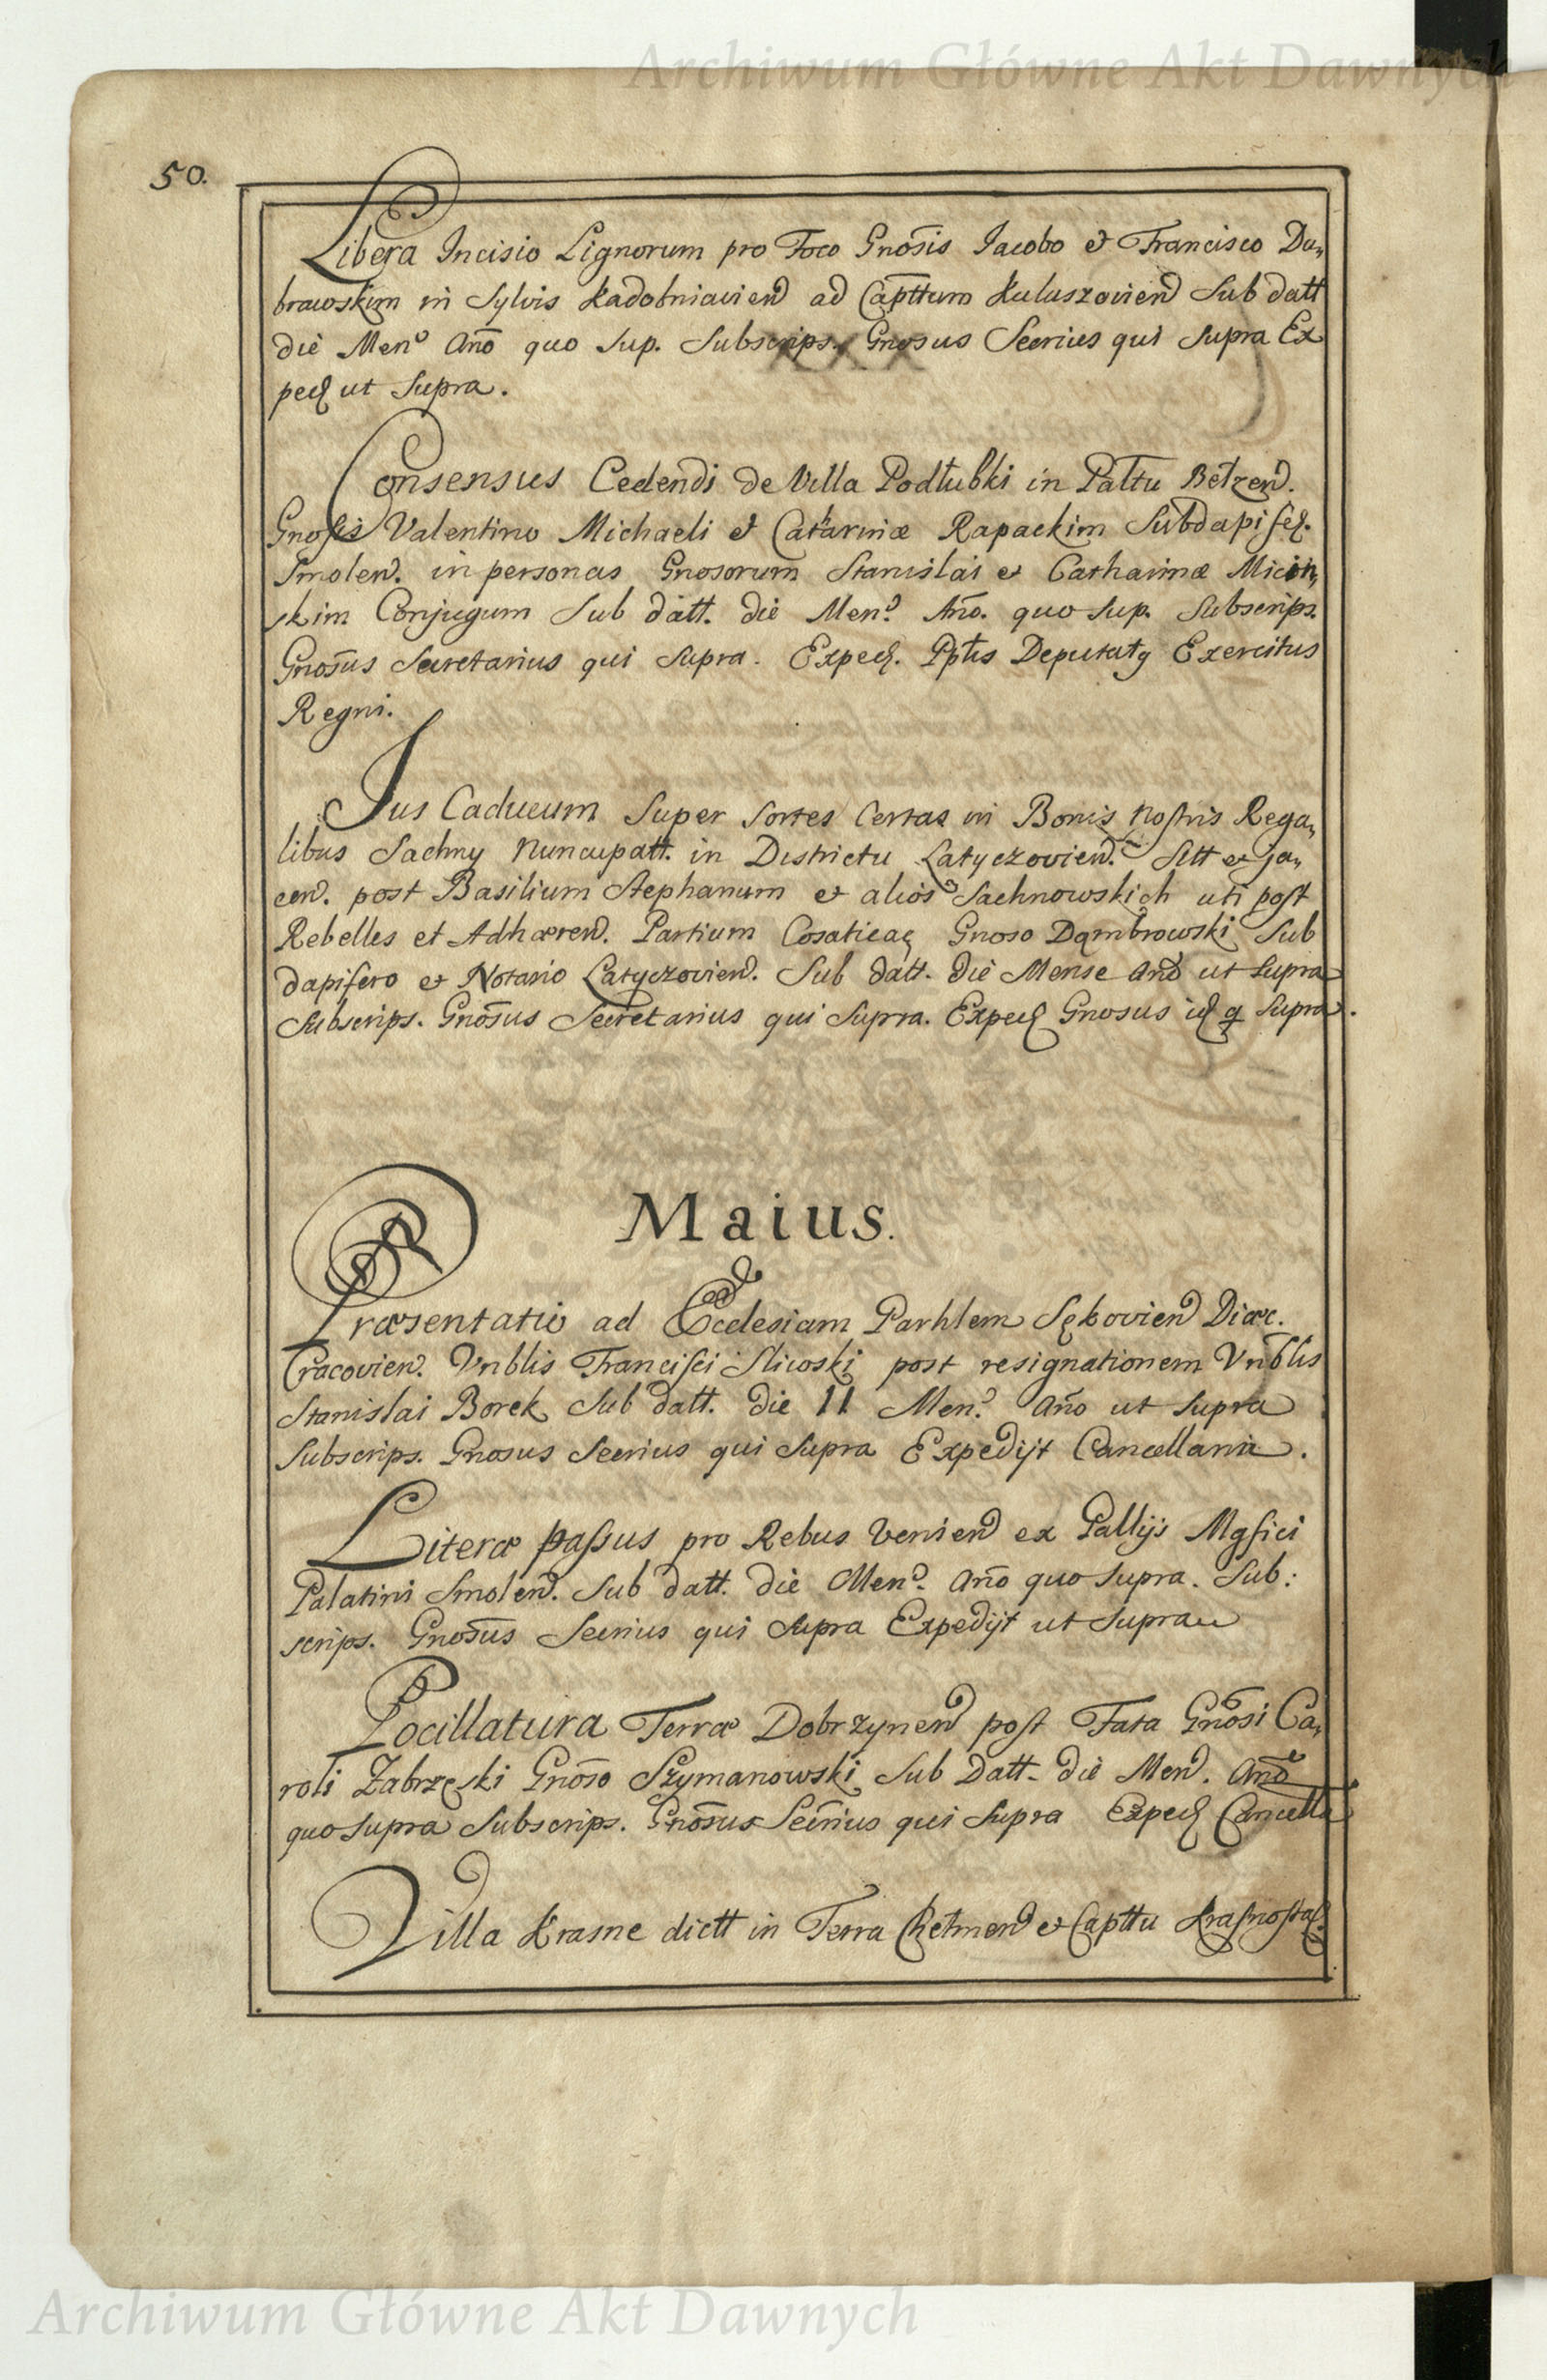 Archiwum Główne Akt Dawnych
50.
Libera Incisio Lignorum pro Foco Gnosis Iacobo et Francisco Du,
browskim in Sylvis Kadobniavien ad Capttum Kaluszovien Sub datt
die Men° Año quo Sup. Subscrips. Gnosus Secrius qui Supra Ex
ped ut Supra.
Consensus Cedendi de Villa Podłubki in Pałtu Bełzen.
Gnosis Valentino Michaeli et Catarinæ Rapackim Subdapifer.
Smolen. in personas Gnosorum Stanislai et Catharinæ Micin,
skim Conjugum Sub datt. die Men° Año. quo Sup. Subscrips.
Gnosus Secretarius qui Supra. Exped. Pptis Deputatq Exercitus
Regni.
Jus Caducum Super Sortes Certas in Bonis Nostris Rega,
libus Sachny Nuncupatt. in Districtu Latyczovien. Sitt et ja,
cen. post Basilium Stephanum et alios Sachnowskich uti post
Rebelles et Adhæren. Partium Cosaticaq Gnoso Dąmbrowski Sub
dapifero et Notario Latyczovien. Sub datt. die Mense Año ut Supra
Subscrips. Gnosus Secretarius qui Supra. Exped Gnosus id q Supra.
Maius.
Præsentatio ad Ecclesiam Parhlem Sękovien Diæc.
Cracovien. Vnblis Francisci Sliwoski post resignationem Vnblis
Stanislai Borek Sub datt. die 11 Men° Año ut Supra
Subscrips. Gnosus Secrius qui Supra Expedijt Cancellaria.
Literæ passus pro Rebus Venien ex Pallijs Mgfici
Palatini Smolen. Sub datt. die Men° Año quo Supra. Sub:
scrips. Gnosus Secrius qui Supra Expedijt ut Supra
Pocillatura Terræ Dobrzynen post Fata Gnosi Ca,
roli Zabrzeski Gnoso Szymanowski Sub Datt. die Men. Año
quo Supra Subscrips. Gnosus Secrius qui Supra Exped Cancella
Villa Krasne dictt in Terra Chełmen et Capttu Krasnostas.
Archiwum Główne Akt Dawnych